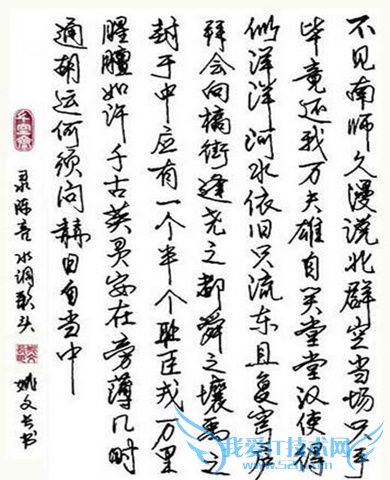 不见南师久漫说北群空当场只手
毕竟还我万夫雄自笑堂堂汉使得
似洋洋河水依旧只流东且复穹庐
拜会向槁街逢尧之都舜之壤禹之
封于中应有一个半个耻臣戎万里
腥膻如许千古英灵安在旁薄几时
通胡运何须问赫日自当中
录陈亮水调歌头 姚文长书
我爱IT技术网